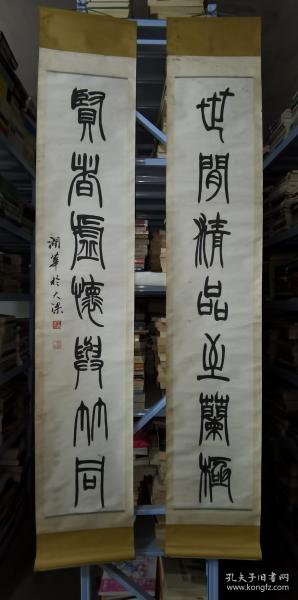 世閒清品至蘭極
賢者虛懷與竹同
於大梁
孔夫子旧书网
www.kongfz.com